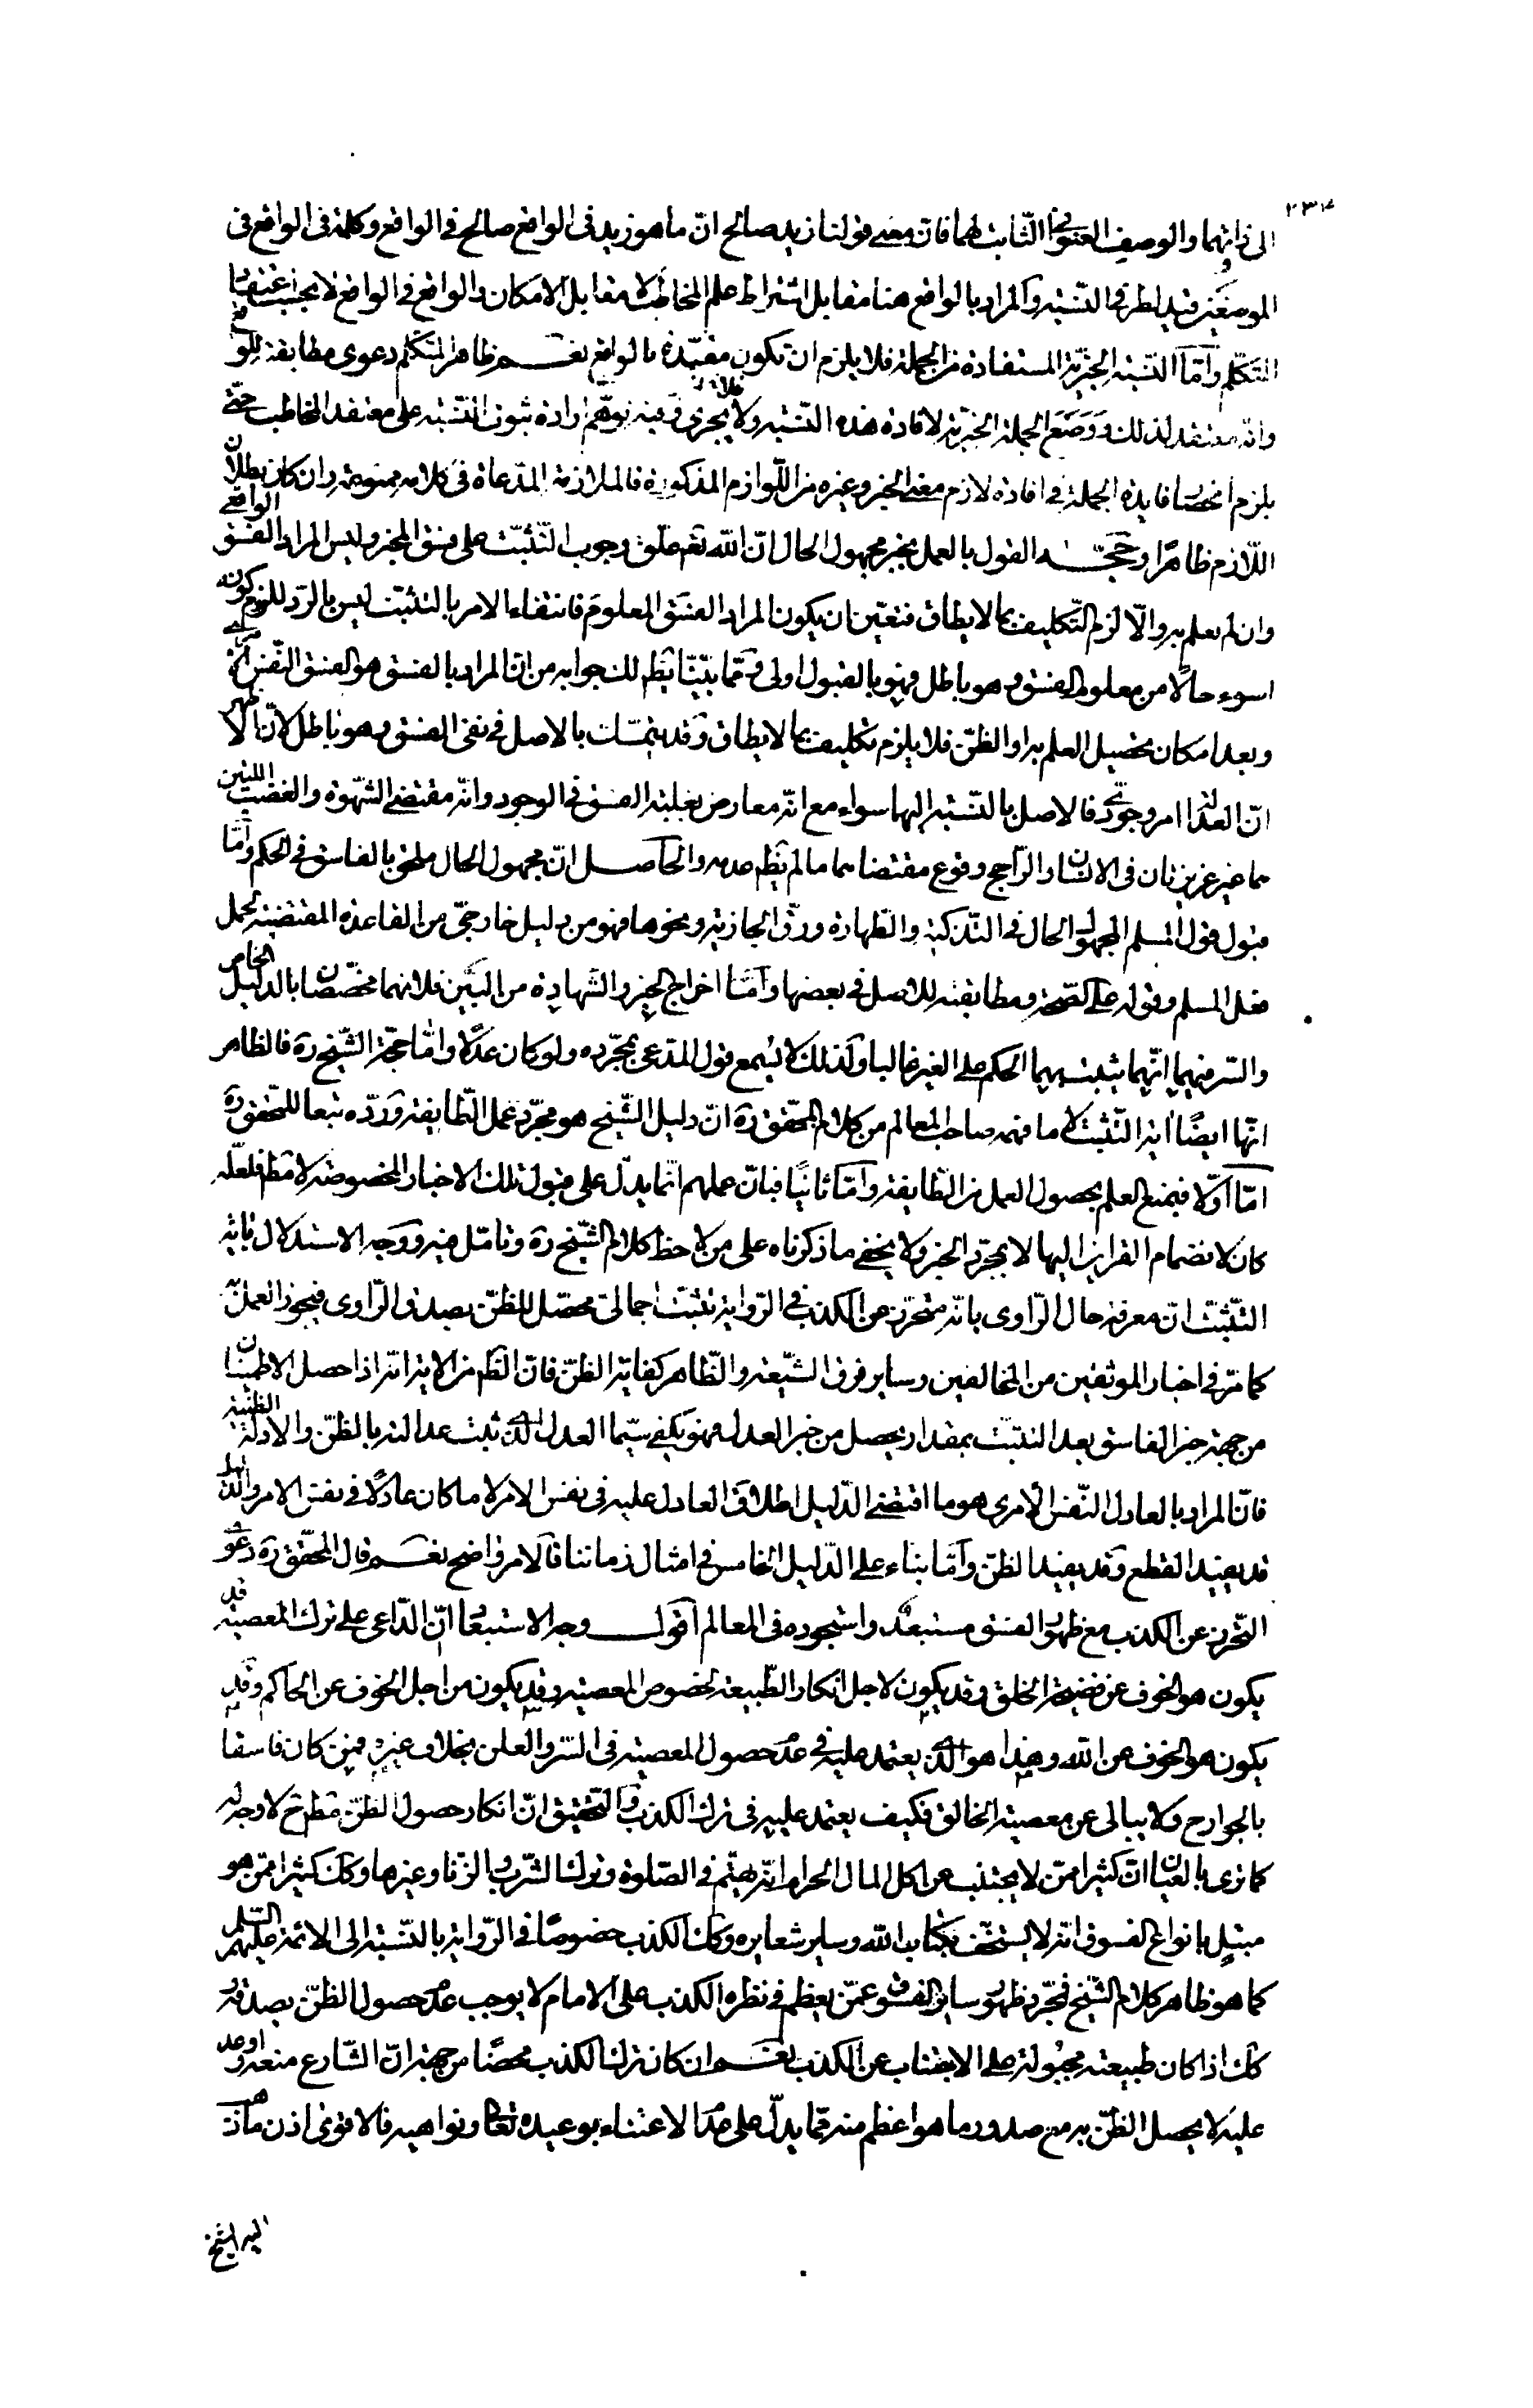 الى ذاتهما والوصف العنوانى الثابت لهما فان معنى قولنا زيد صالح ان ما هو زيد فى الواقع صالح فى الواقع وكلمة فى الواقع فى
الموضعين قيد لطرفى النسبة والمراد بالواقع هنا مقابل اشتراط علم المخاطب لا مقابل الامكان والواقع فى الواقع لا بحسب
المتكلم وامّا النسبة الخبريّة المستفادة من الجملة فلا يلزم ان تكون مقيّدة بالواقع نعم ظاهر المتكلم دعوى مطابقة للواقع
وانه معتقد لذلك ووضع الجملة الخبريّة لافادة هذه النسبة ولا يجرى فيه توهم ارادة ثبوت النسبة على معتقد المخاطب حتى
يلزم انحصار فايدة الجملة فى افادة لازم معنى الخبر وغيره من اللّوازم المذكورة فالملازمة المدّعاة فى كلامه ممنوعة وان كان بطلان
اللّازم ظاهرا وحجّـة القول بالعمل بخبر مجهول الحال انّ الله تعم علّق وجوب التّثبّت على فسق المخبر وليس المراد الفسق الواقعى
وان لم يعلم به والّا لزم التّكليف بما لا يطاق فتعيّن ان يكون المراد الفسق المعلوم فانتفاء الامر بالتثبّت ليس بالردّ للزوم كونه
اسوء حالًا من معلوم الفسق وهو باطل فهو بالقبول اولى وممّا بيّنّا يظهر لك جوابه من انّ المراد بالفسق هو الفسق النّفس الامرى
وبعد امكان تحصيل العلم به او الظنّ فلا يلزم تكليف بما لا يطاق وقد يتمسّك بالاصل فى نفى الفسق وهو باطل لانّ الاظهر
انّ العدالة امر وجودى فالاصل بالنّسبة اليها سواء مع انّه معارض بغلبة الفسق فى الوجود وانّه مقتضى الشّهوة والغضب اللتين
هما غريزيتان فى الانسان والرّاجح وقوع مقتضاهما ما لم يظهر عدمه والحاصـل انّ مجهول الحال ملحق بالفاسق فى الحكم وامّا
قبول قول المسلم المجهول الحال فى التّذكية والطّهارة ورقّ الجارية ونحوها فهو من دليل خارجىّ من القاعدة المقتضية لحمل
فعل المسلم وقوله على الصّحة ومطابقته للاصل فى بعضها وامّا اخراج الخبر والشهادة من البين فلانهما مخصّصان بالدّليل الخاص
والسّر فيهما انّهما يثبت بهما الحكم على الغير غالبا وكذلك لا يسمع قول المدّعى بمجرّده ولو كان عدلًا وامّا حجّة الشّيخ ره فالظاهر
انّها ايضًا اية التّثبّت لا ما فهمه صاحب المعالم من كلام المحقّق ره انّ دليل الشّيخ هو مجرّد عمل الطّايفة وردّه تبعا للمحقق ره
امّا اوّلا فبمنع العلم بحصول العمل من الطّايفة وامّا ثانيًا فبانّ عملهم انّما يدلّ على قبول تلك الاخبار المخصوصة لا مطلقا فلعلّه
كان لانضمام القراين اليها لا بمجرّد الخبر ولا يخفى ما ذكرناه على من لاحظ كلام الشّيخ ره وتامّل فيه ووجه الاستدلال باية
التثبّت انّ معرفة حال الرّاوى بانّه متحرّز عن الكذب فى الرّواية تثبّت اجمالىّ محصّل للظنّ بصدق الرّاوى فيجوز العمل به
كما مرّ فى اخبار الموثقين من المخالفين وساير فرق الشّيعة والظّاهر كفاية الظنّ فانّ الظّهر من الاية انّه اذا حصل الاطمينان
من جهة خبر الفاسق بعد التثبّت بمقدار يحصل من خبر العدل فهو يكفى سيّما العدل الّذى ثبت عدالته بالظنّ والادلّة الظنّية
فانّ المراد بالعادل النّفس الامرى هو ما اقتضى الدّليل اطلاق العادل عليه فى نفس الامر لا ما كان عادلًا فى نفس الامر والدّليل
قد يفيد القطع وقد يفيد الظنّ وامّا بناء على الدّليل الخامس فى امثال زماننا فالامر واضح نعـم قال المحقّق ره دعوى
التّحرز عن الكذب مع ظهور الفسق مستبعد واستجوده فى المعالم اقول وجه الاستبعاد انّ الدّاعى على ترك المعصية قد
يكون هو الخوف عن فضيحة الخلق وقد يكون لاجل انكار الطّبيعة لخصوص المعصية وقد يكون من اجل الخوف عن الحاكم وقد
يكون هو الخوف عن الله وهذا هو الّذى يعتمد عليه فى عدم حصول المعصية فى السّر والعلن بخلاف غيره فمن كان فاسقا
بالجوارح ولا يبالى عن معصية الخالق فكيف يعتمد عليه فى ترك الكذب والتّحقيق انّ انكار حصول الظنّ مطلقا لا وجه له
كما ترى بالعيان انّ كثيرا ممّن لا يجتنب عن اكل المال الحرام انّه يهتمّ فى الصّلوة وترك الشّرب والزّنا وغيرها وكذلك كثيرا ممّن هو
مبتلى بانواع الفسوق انّه لا يستخفّ بكتاب الله وساير شعايره وكذلك الكذب خصوصًا فى الرّواية بالنّسبة الى الائمة عليهم السّلم
كما هو ظاهر كلام الشّيخ فمجرّد ظهور ساير الفسوق عمّن يعظم فى نظره الكذب على الامام لا يوجب عدم حصول الظنّ بصدقه
كذلك اذا كان طبيعته مجبولة على الاجتناب عن الكذب نعـم ان كان ترك الكذب محضًا من جهة انّ الشّارع منعه واوعد
عليه لا يحصل الظنّ به مع صدور ما هو اعظم منه ممّا يدلّ على عدم الاعتناء بوعيده تعالى ونواهيه فالاقوى اذن ما ذهب
اليه الشيخ